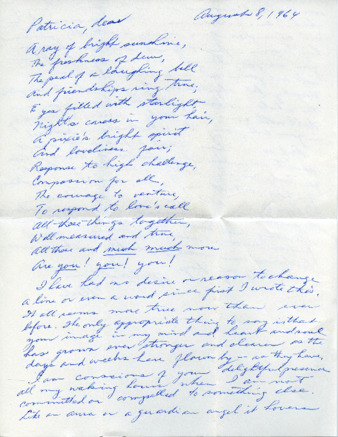 August 8, 1964
Patricia, dear
A ray of bright sunshine,
The freshness of dew,
The peal of a laughing bell
And friendships ring true;
Eyes filled with starlight
Night's caress in your hair,
A pixie's bright spirit
And loveliness fair;
Response to high challenge,
Compassion for all,
The courage to venture,
To respond to love's call
All those things together,
Well measured and true,
All those and much much more
Are you! you! you!
I have had no desire or reason to change
a line or even a word, since first I wrote this.
It all seems more true now than ever
before. The only appropriate thing to say is that
your image in my mind and heart and soul
has grown ever stronger and clearer as the
days and weeks have flown by - as they have,
I am conscious of your delightful presence
all my waking hours when I am not
committed or compelled to something else.
Like an aura or a guardian angel it hovers